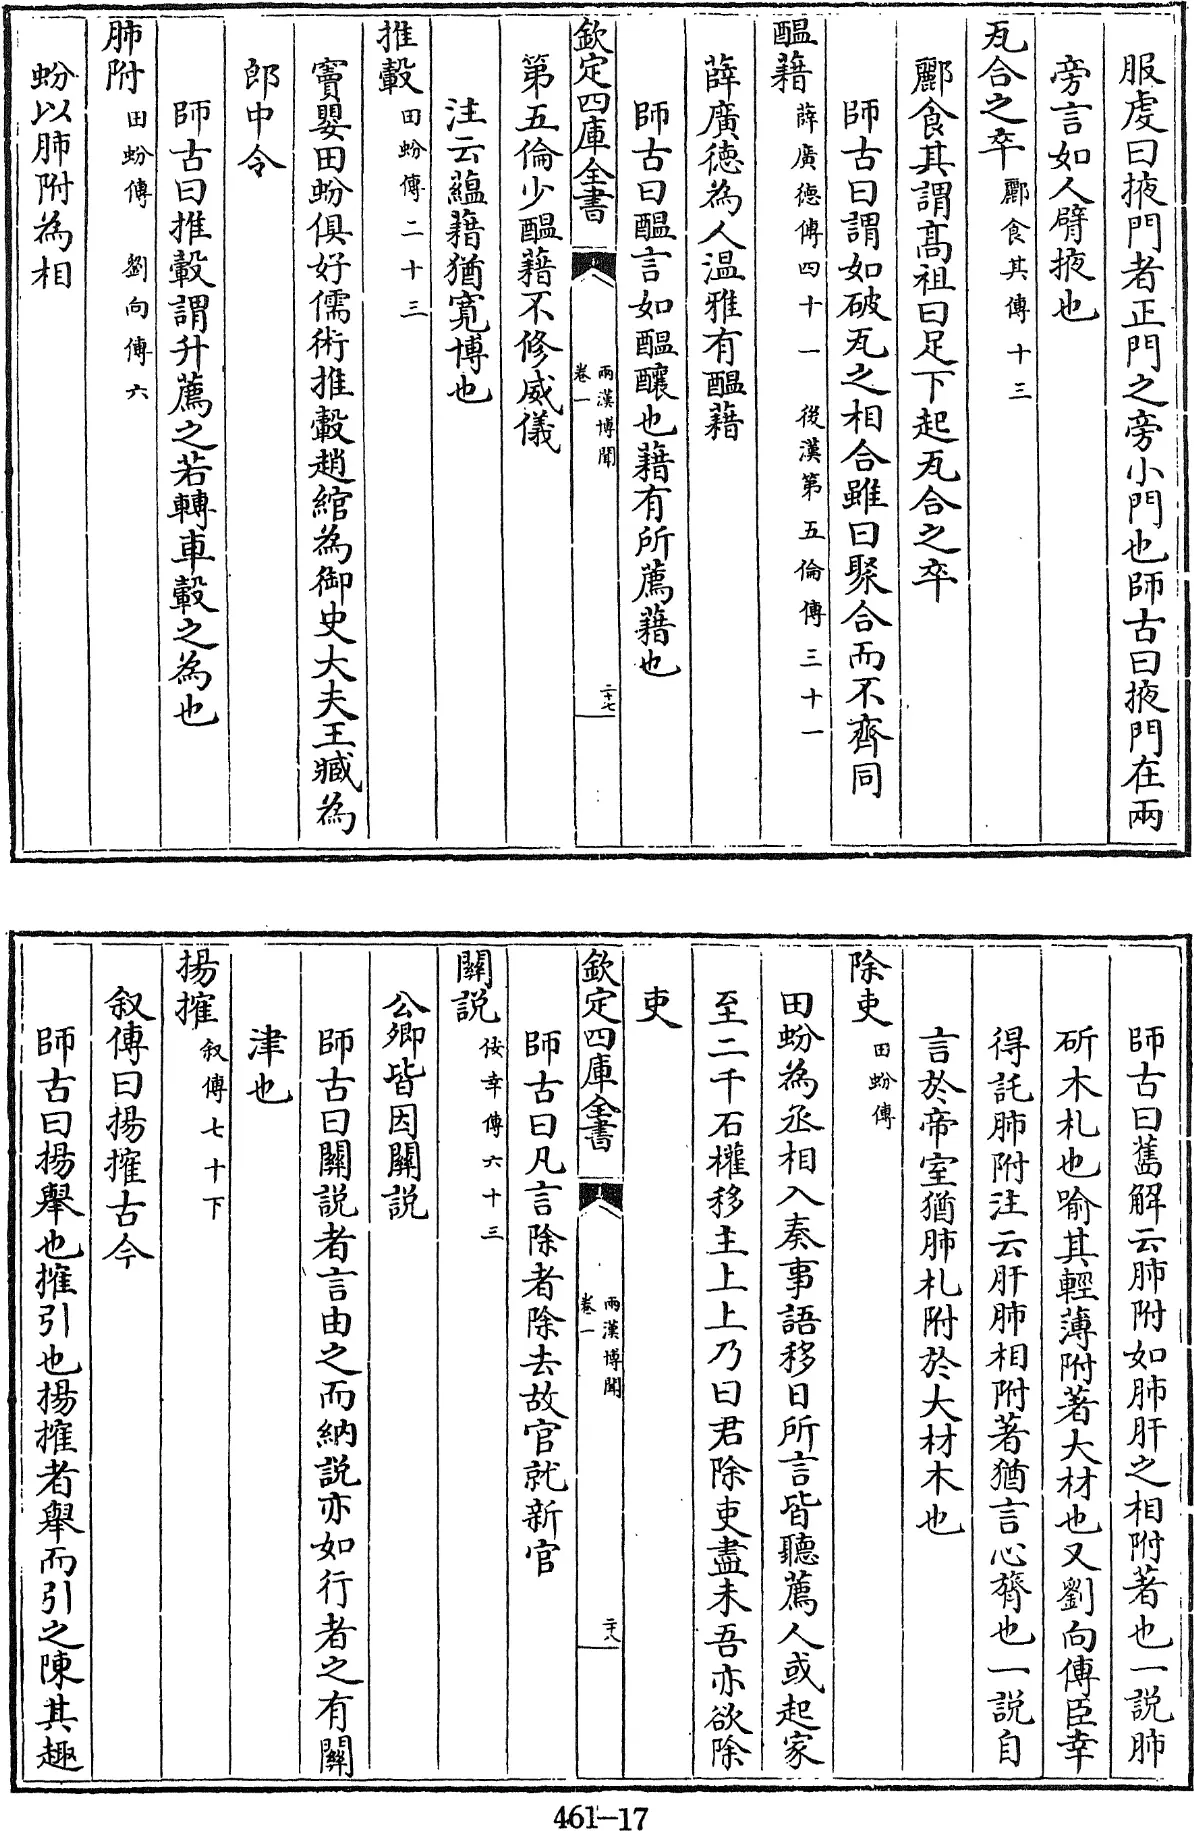 服虔曰掖門者正門之旁小門也師古曰掖門在兩
旁言如人臂掖也
瓦合之卒 酈食其傳十三
酈食其謂髙祖曰足下起瓦合之卒
師古曰謂如破瓦之相合雖曰聚合而不齊同
醖藉 薛廣德傳四十一 後漢第五倫傳三十一
薛廣德為人温雅有醖藉
師古曰醖言如醖釀也藉有所薦藉也
欽定四庫全書 兩漢博聞 卷一 二十七
第五倫少醖藉不修威儀
注云蘊藉猶寛博也
推轂 田蚡傳二十三
竇嬰田蚡俱好儒術推轂趙綰為御史大夫王臧為
郎中令
師古曰推轂謂升薦之若轉車轂之為也
肺附 田蚡傳 劉向傳六
蚡以肺附為相
師古曰舊解云肺附如肺肝之相附著也一説肺
斫木札也喻其輕薄附著大材也又劉向傳臣幸
得託肺附注云肝肺相附著猶言心膂也一説自
言於帝室猶肺札附於大材木也
除吏 田蚡傳
田蚡為丞相入奏事語移日所言皆聽薦人或起家
至二千石權移主上上乃曰君除吏盡未吾亦欲除
吏
欽定四庫全書 兩漢博聞 卷一 二十八
師古曰凡言除者除去故官就新官
關説 佞幸傳六十三
公卿皆因關説
師古曰關説者言由之而納説亦如行者之有關
津也
揚搉 叙傳七十下
叙傳曰揚搉古今
師古曰揚舉也搉引也揚搉者舉而引之陳其趣
461-17